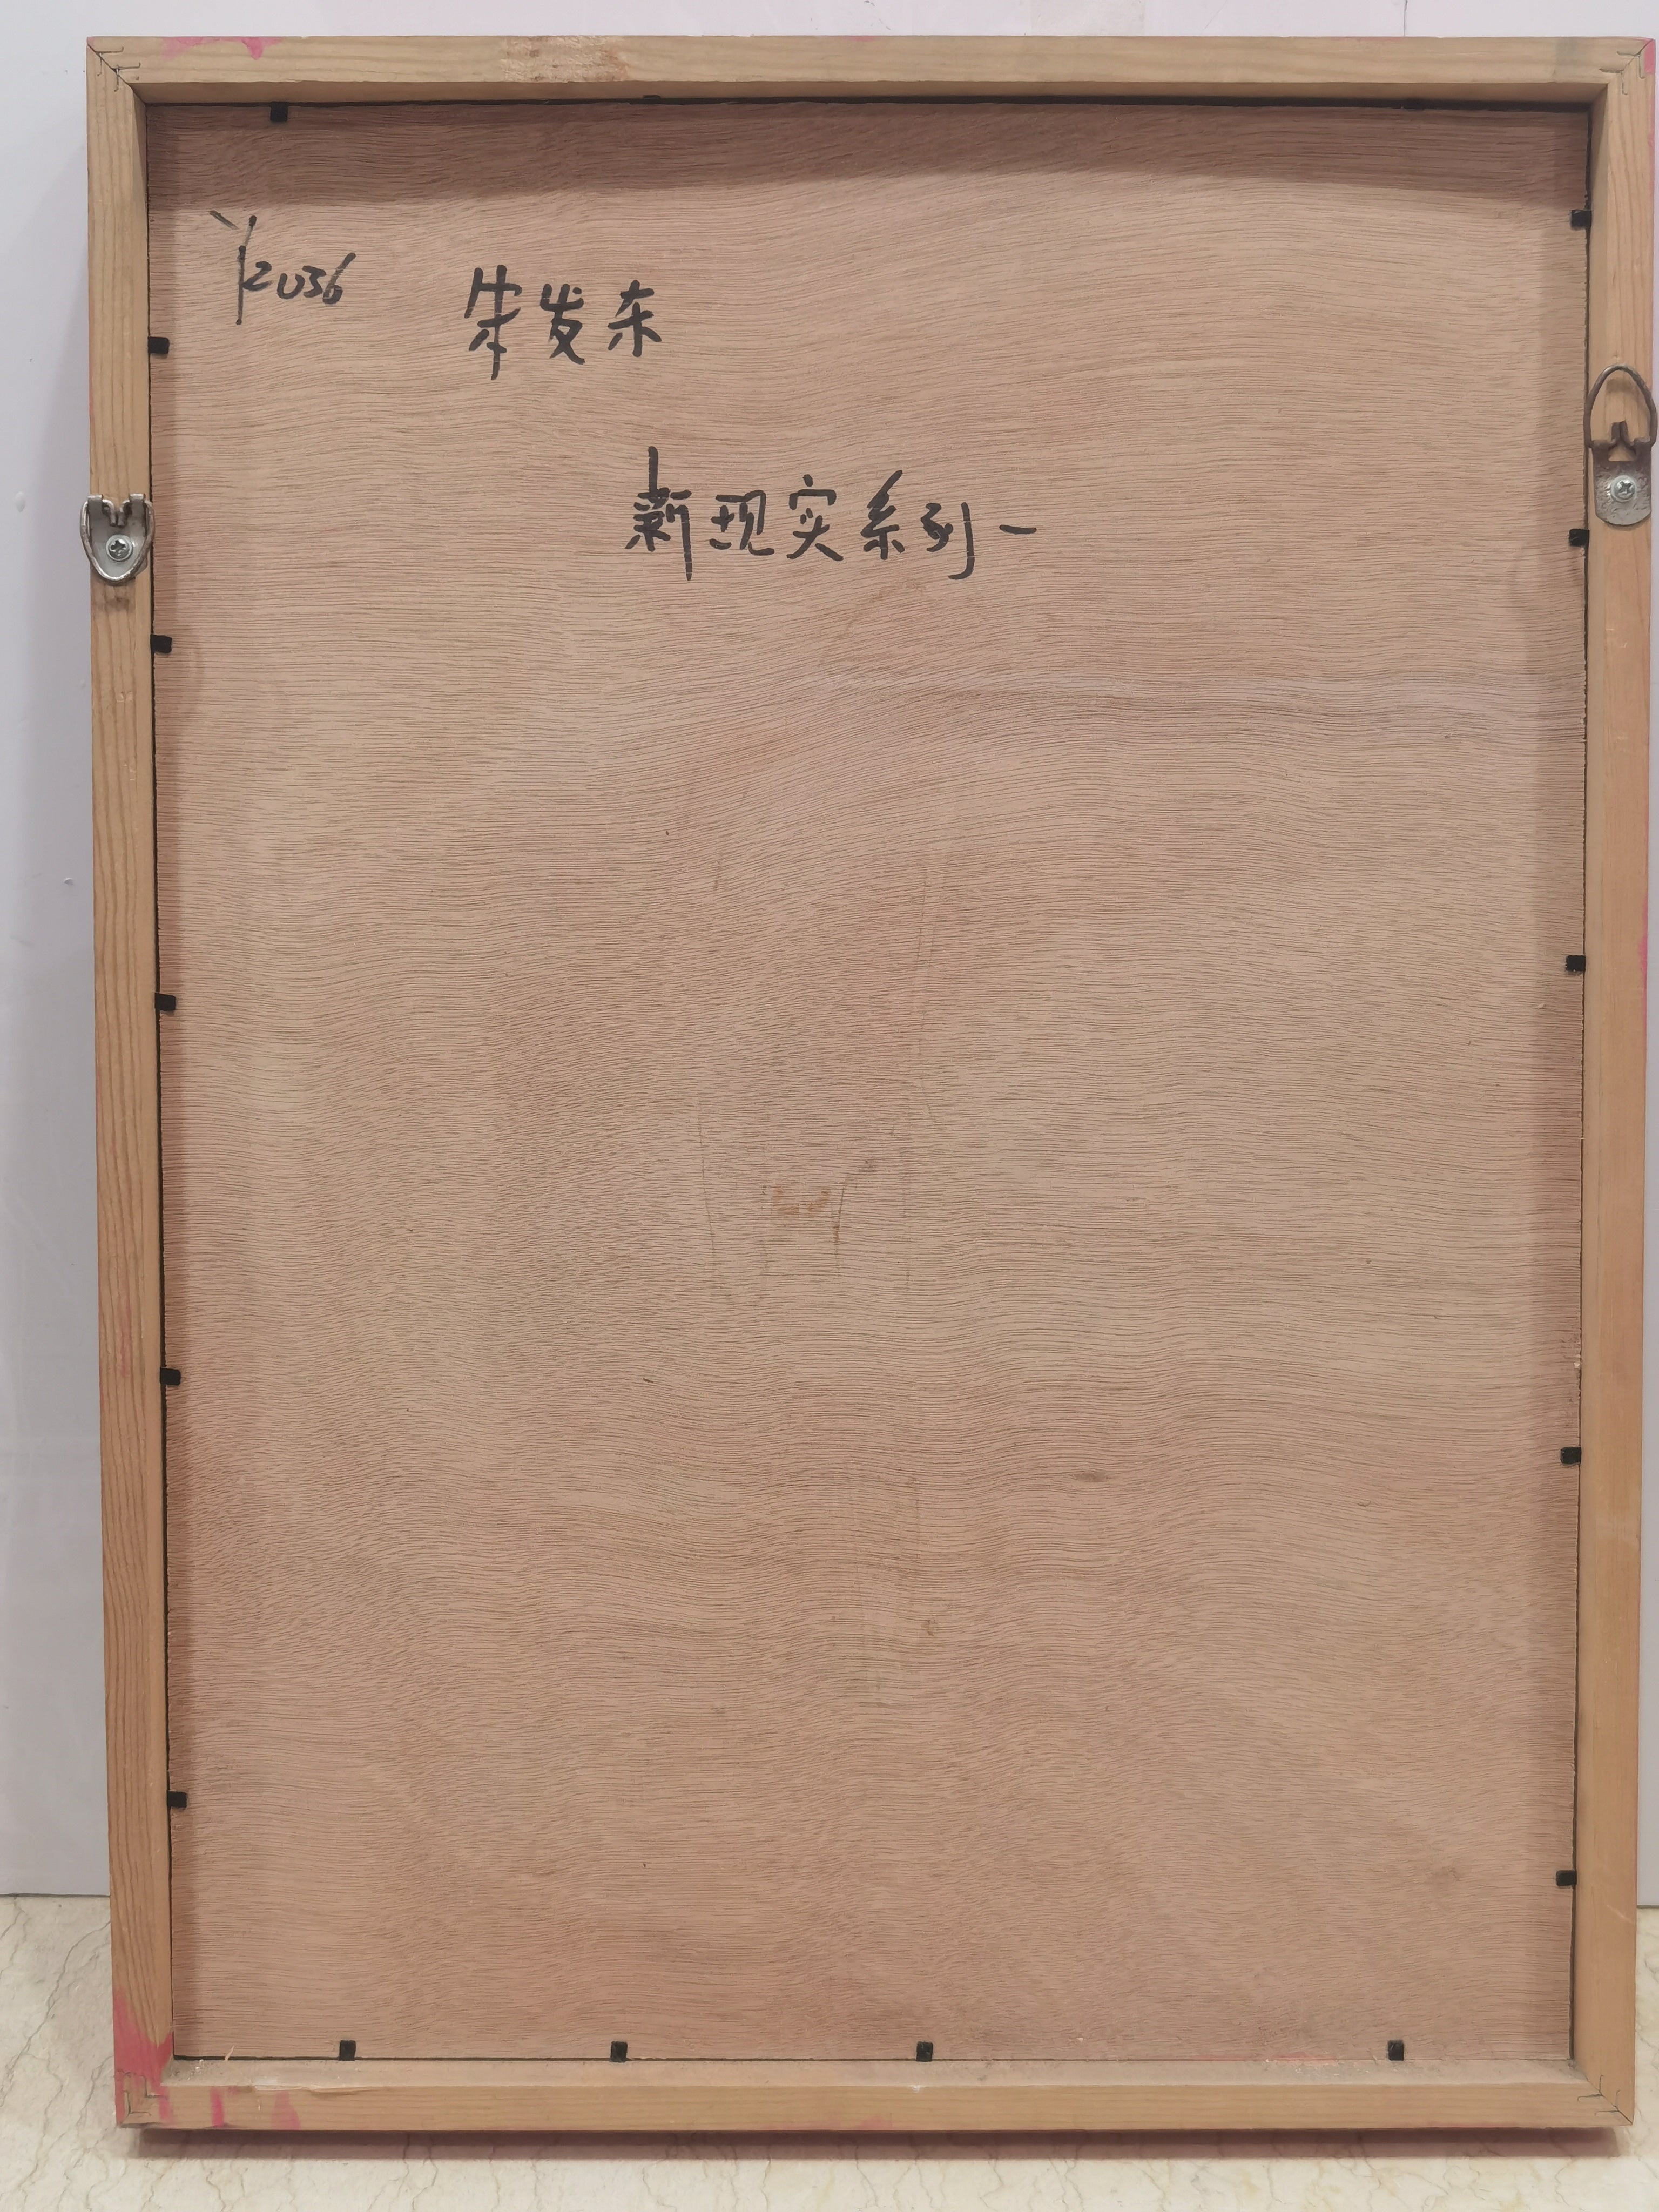 Y2036
朱发东
新现实系列一